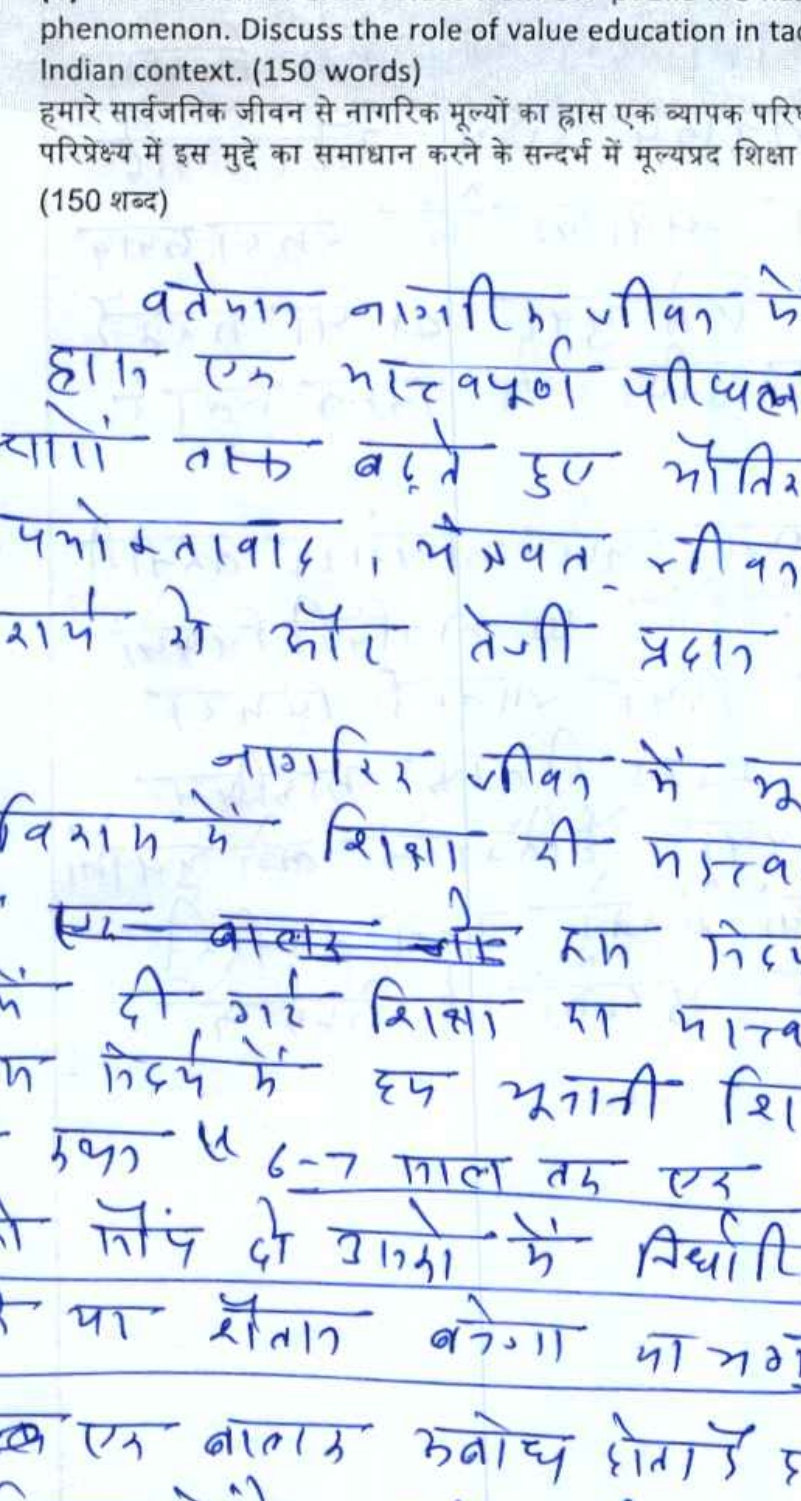 phenomenon. Discuss the role of value education in tac
Indian context. (150 words)
हमारे सार्वजनिक जीवन से नागरिक मूल्यों का ह्रास एक व्यापक परिघ
परिप्रेक्ष्य में इस मुद्दे का समाधान करने के सन्दर्भ में मूल्यप्रद शिक्षा
(150 शब्द)
वर्तमान नागरिक जीवन में
ह्रास एक महत्वपूर्ण परिघटन
चारों तरफ बढ़ते हुए भौतिक
पभोक्तावाद, यंत्रवत जीवन
और तेजी प्रदान
नागरिक जीवन में मू
विकास में शिक्षा की महत्व
इस संदर्भ
में दी गई शिक्षा का महत्व
संदर्भ में हम यूनानी शि
कथन 6-7 साल तक एक
सौंप दो उसको में निर्धारि
या शैतान बनेगा या भग
एक बालक अबोध होता है